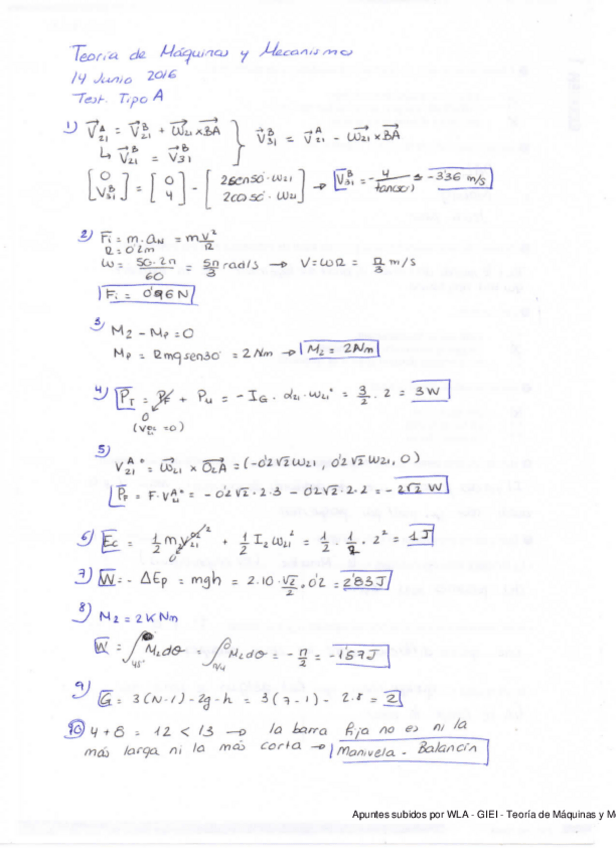 Teoría de Máquinas y Mecanismos
14 Junio 2016
Test. Tipo A
1) V⃗²¹ᴬ = V⃗²¹ᴮ + ω⃗₂₁ × BA⃗ } V⃗³¹ᴮ = V⃗²¹ᴬ - ω⃗₂₁ × BA⃗
↳ V⃗²¹ᴮ = V⃗³¹ᴮ
[0 V₃₁ᴮ] = [0 4] - [2sen50·ω₂₁ 2cos50·ω₂₁] → V₃₁ᴮ = - 4/ = -3'36 m/s
2) Fi = m·aN = m v²/R
R = 0'2m
ω = 50·2π/60 = 5π/3 rad/s → V = ωR = π/3 m/s
Fi = N
3) M2 - MP = 0
MP = Rmg sen30 = 2Nm → M2 = 2Nm
4) PT = PF + Pu = - IG · α₂₁ · ω₂₁ = 3/2 · 2 = 3W
0
5)
V₂₁ᴬ = ω⃗₂₁ × O₂A⃗ = (-0'2√2ω₂₁, 0'2√2ω₂₁, 0)
PF = F·V₂₁ᴬ = -0'2√2·2·3 - 0'2√2·2·2 = -2√2 W
6) Ec = 1/2 m₂ + 1/2 I₂ω₂₁² = 1/2 · · 2² = 1J
7) W = -ΔEp = mgh = 2·10·√2/2·0'2 = 2'83J
8) M2 = 2KNm
W = ∫ M₂dθ = ∫ M₂dθ = -π/2 = -1'57J
9) G = 3(N-1) - 2g - h = 3(7-1) - 2·8 = 2
10) 4+8 = 12 < 13 → la barra fija no es ni la
más larga ni la más corta → Manivela - Balancín
Apuntes subidos por WLA - GIEI - Teoría de Máquinas y M